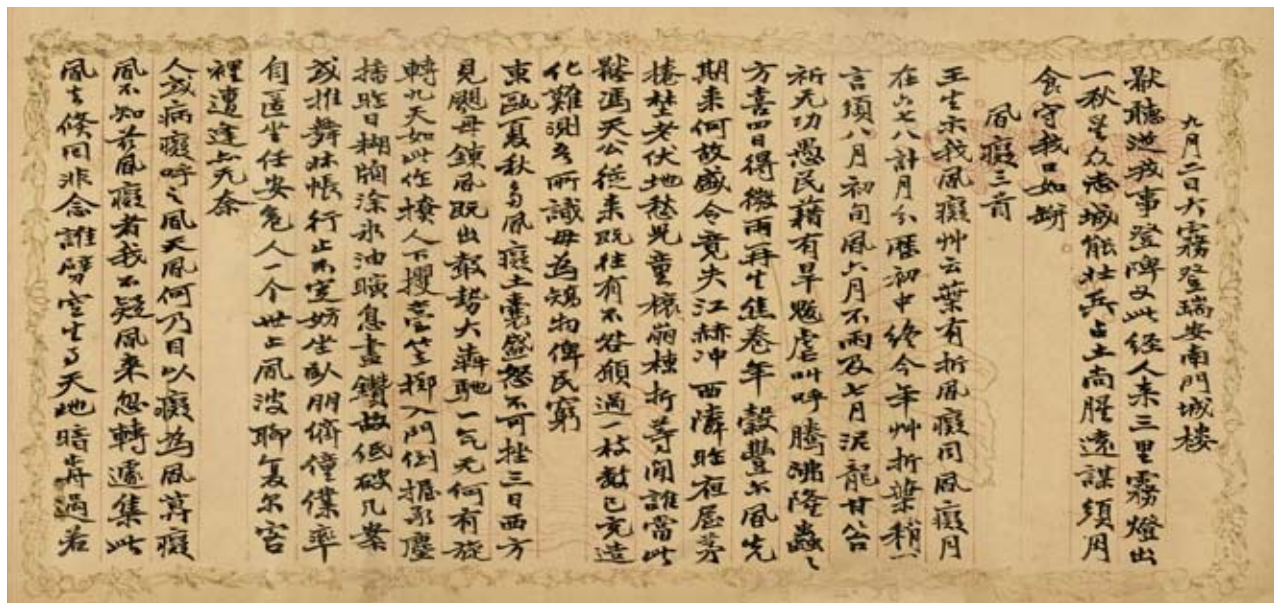 九月二日大霧登瑞安南門城樓
獸聽遊我事登陴又此經人來三里霧燈出
一秋星众志城能壯兵占土尚腥遠謀須用
食守我口如缾
風癡三首
王生示我風癡艸云葉有折風癡同風癡月
在六七八計月分曆初中終今年艸折葉稍一
言須八月初旬風六月不雨及七月泥龍甘公
祈无功愚民藉有旱魃虐叫呼騰沸隆蟲〻
方喜四日得微雨再生焦卷年穀豐不風先
期來何故盛令竟失江赫冲西隣昨夜屋茅
捲埜老伏地愁兒童榱崩棟折等閒誰當此
馮天公從來既往有不咎願過一枝數已充造
化難測吾所識毋為芻物俾民窮
東甌夏秋多風癡土囊盛怒不可挫三日西方
見颶母鍊風既出聲勢大轟馳一气无何有旋
轉九天如此作橫人下攫臺笠擲入門倒握承塵
播昨日糊牕涂氷油瞚息盡鑽故低破几案
或推舞牀帳行止不寔妨坐臥朋儕僮僕率
自匿坐任安危人一个世上風波聊复尔客
裡遭逢亦无奈
人或病癡呼之風天風何乃目以癡為風筭癡
風不知花風癡者我不疑風來忽轉遽集此
風去倏同非念誰劈空生了天地暗奔過若